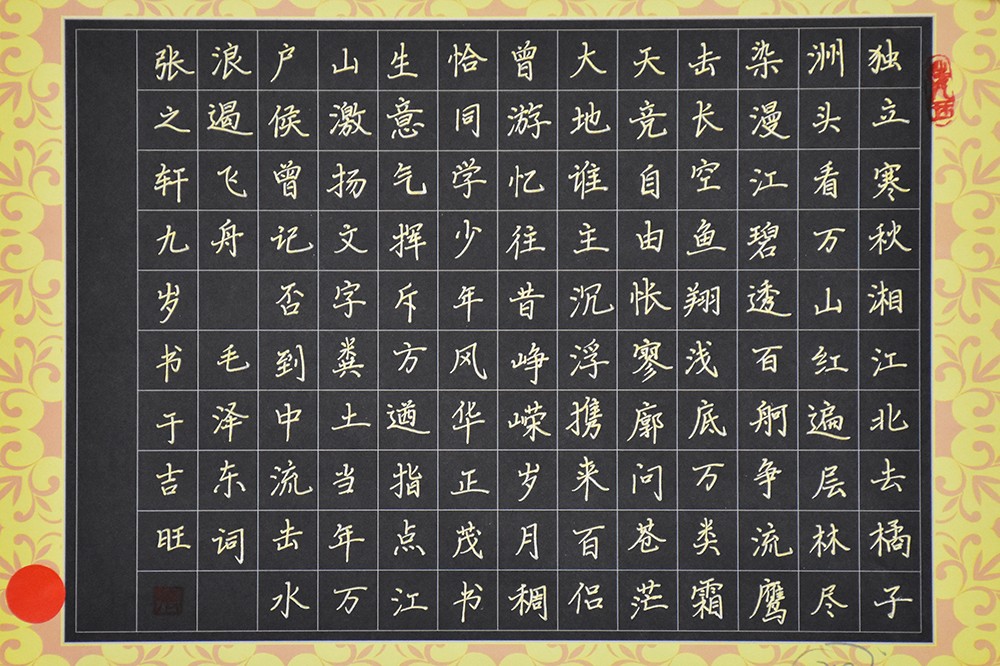 独立寒秋湘江北去橘子
洲头看万山红遍层林尽
染漫江碧透百舸争流鹰
击长空鱼翔浅底万类霜
天竞自由怅寥廓问苍茫
大地谁主沉浮携来百侣
曾游忆往昔峥嵘岁月稠
恰同学少年风华正茂书
生意气挥斥方遒指点江
山激扬文字粪土当年万
户候曾记否到中流击水
浪遏飞舟 毛泽东词
张之轩九岁书于吉旺